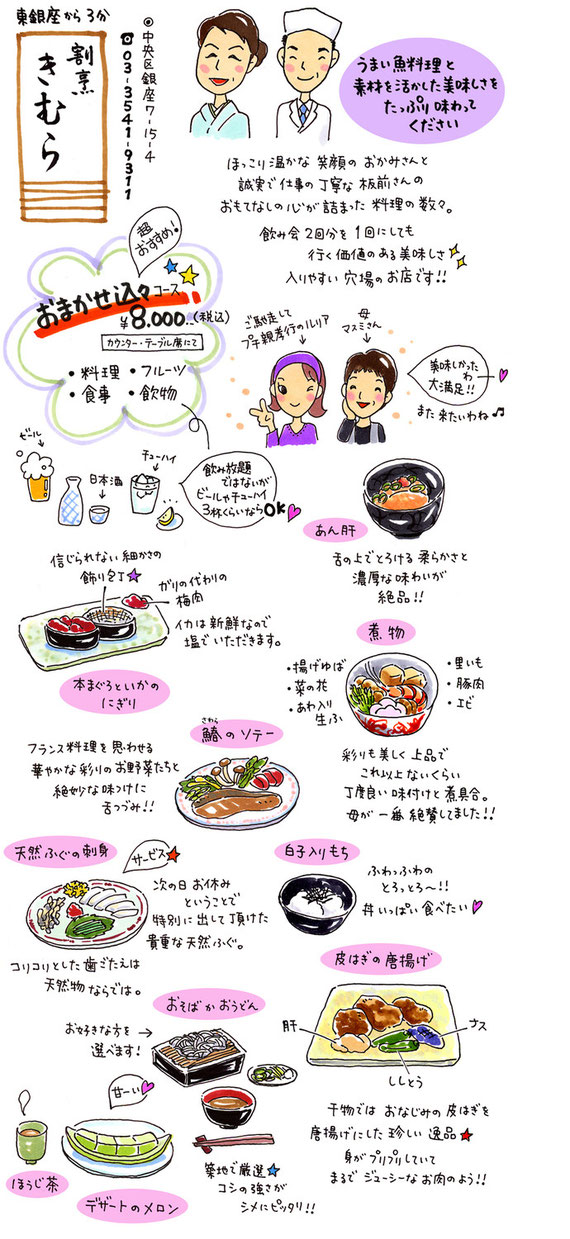 東銀座から3分
割烹
きむら
◎中央区銀座7-15-4
☎03-3541-9311
うまい魚料理と
素材を活かした美味しさを
たっぷり味わって
ください
ほっこり温かな笑顔のおかみさんと
誠実で仕事の丁寧な板前さんの
おもてなしの心が詰まった料理の数々。
飲み会2回分を1回にしても
行く価値のある美味しさ
入りやすい穴場のお店です!!
超おすすめ!
おまかせ込々コース!
¥8.000..(税込)
カウンター・テーブル席にて
・料理 ・フルーツ
・食事 ・飲物
ご馳走して
プチ親孝行のルリア
母
マスミさん
美味しかったわ
大満足!!
また来たいわね♫
ビール
日本酒
チューハイ
飲み放題
ではないが
ビールやチューハイ
3杯くらいならOK
あん肝
舌の上でとろける柔らかさと
濃厚な味わいが
絶品!!
信じられない細かさの
飾り包丁★
ガリの代わりの
梅肉
イカは新鮮なので
塩でいただきます。
本まぐろといかの
にぎり
煮物
・揚げゆば
・菜の花
・あわ入り
生ふ
・里いも
・豚肉
・エビ
彩りも美しく上品で
これ以上ないくらい
丁度良い味付けと煮具合。
母が一番絶賛してました!!
さわら
鰆のソテー
フランス料理を思わせる
華やかな彩りのお野菜たちと
絶妙な味つけに
舌つづみ!!
天然ふぐの刺身
サービス★
次の日お休み
ということで
特別に出して頂けた
貴重な天然ふぐ。
コリコリとした歯ごたえは
天然物ならでは。
白子入りもち
ふわっふわの
とろっとろ〜!!
丼いっぱい食べたい
皮はぎの唐揚げ
肝
ナス
ししとう
干物ではおなじみの皮はぎを
唐揚げにした珍しい逸品★
身がプリプリしていて
まるでジューシーなお肉のよう!!
おそばかおうどん
お好きな方を
選べます!
築地で厳選★
コシの強さが
シメにピッタリ!!
甘ーい
ほうじ茶
デザートのメロン